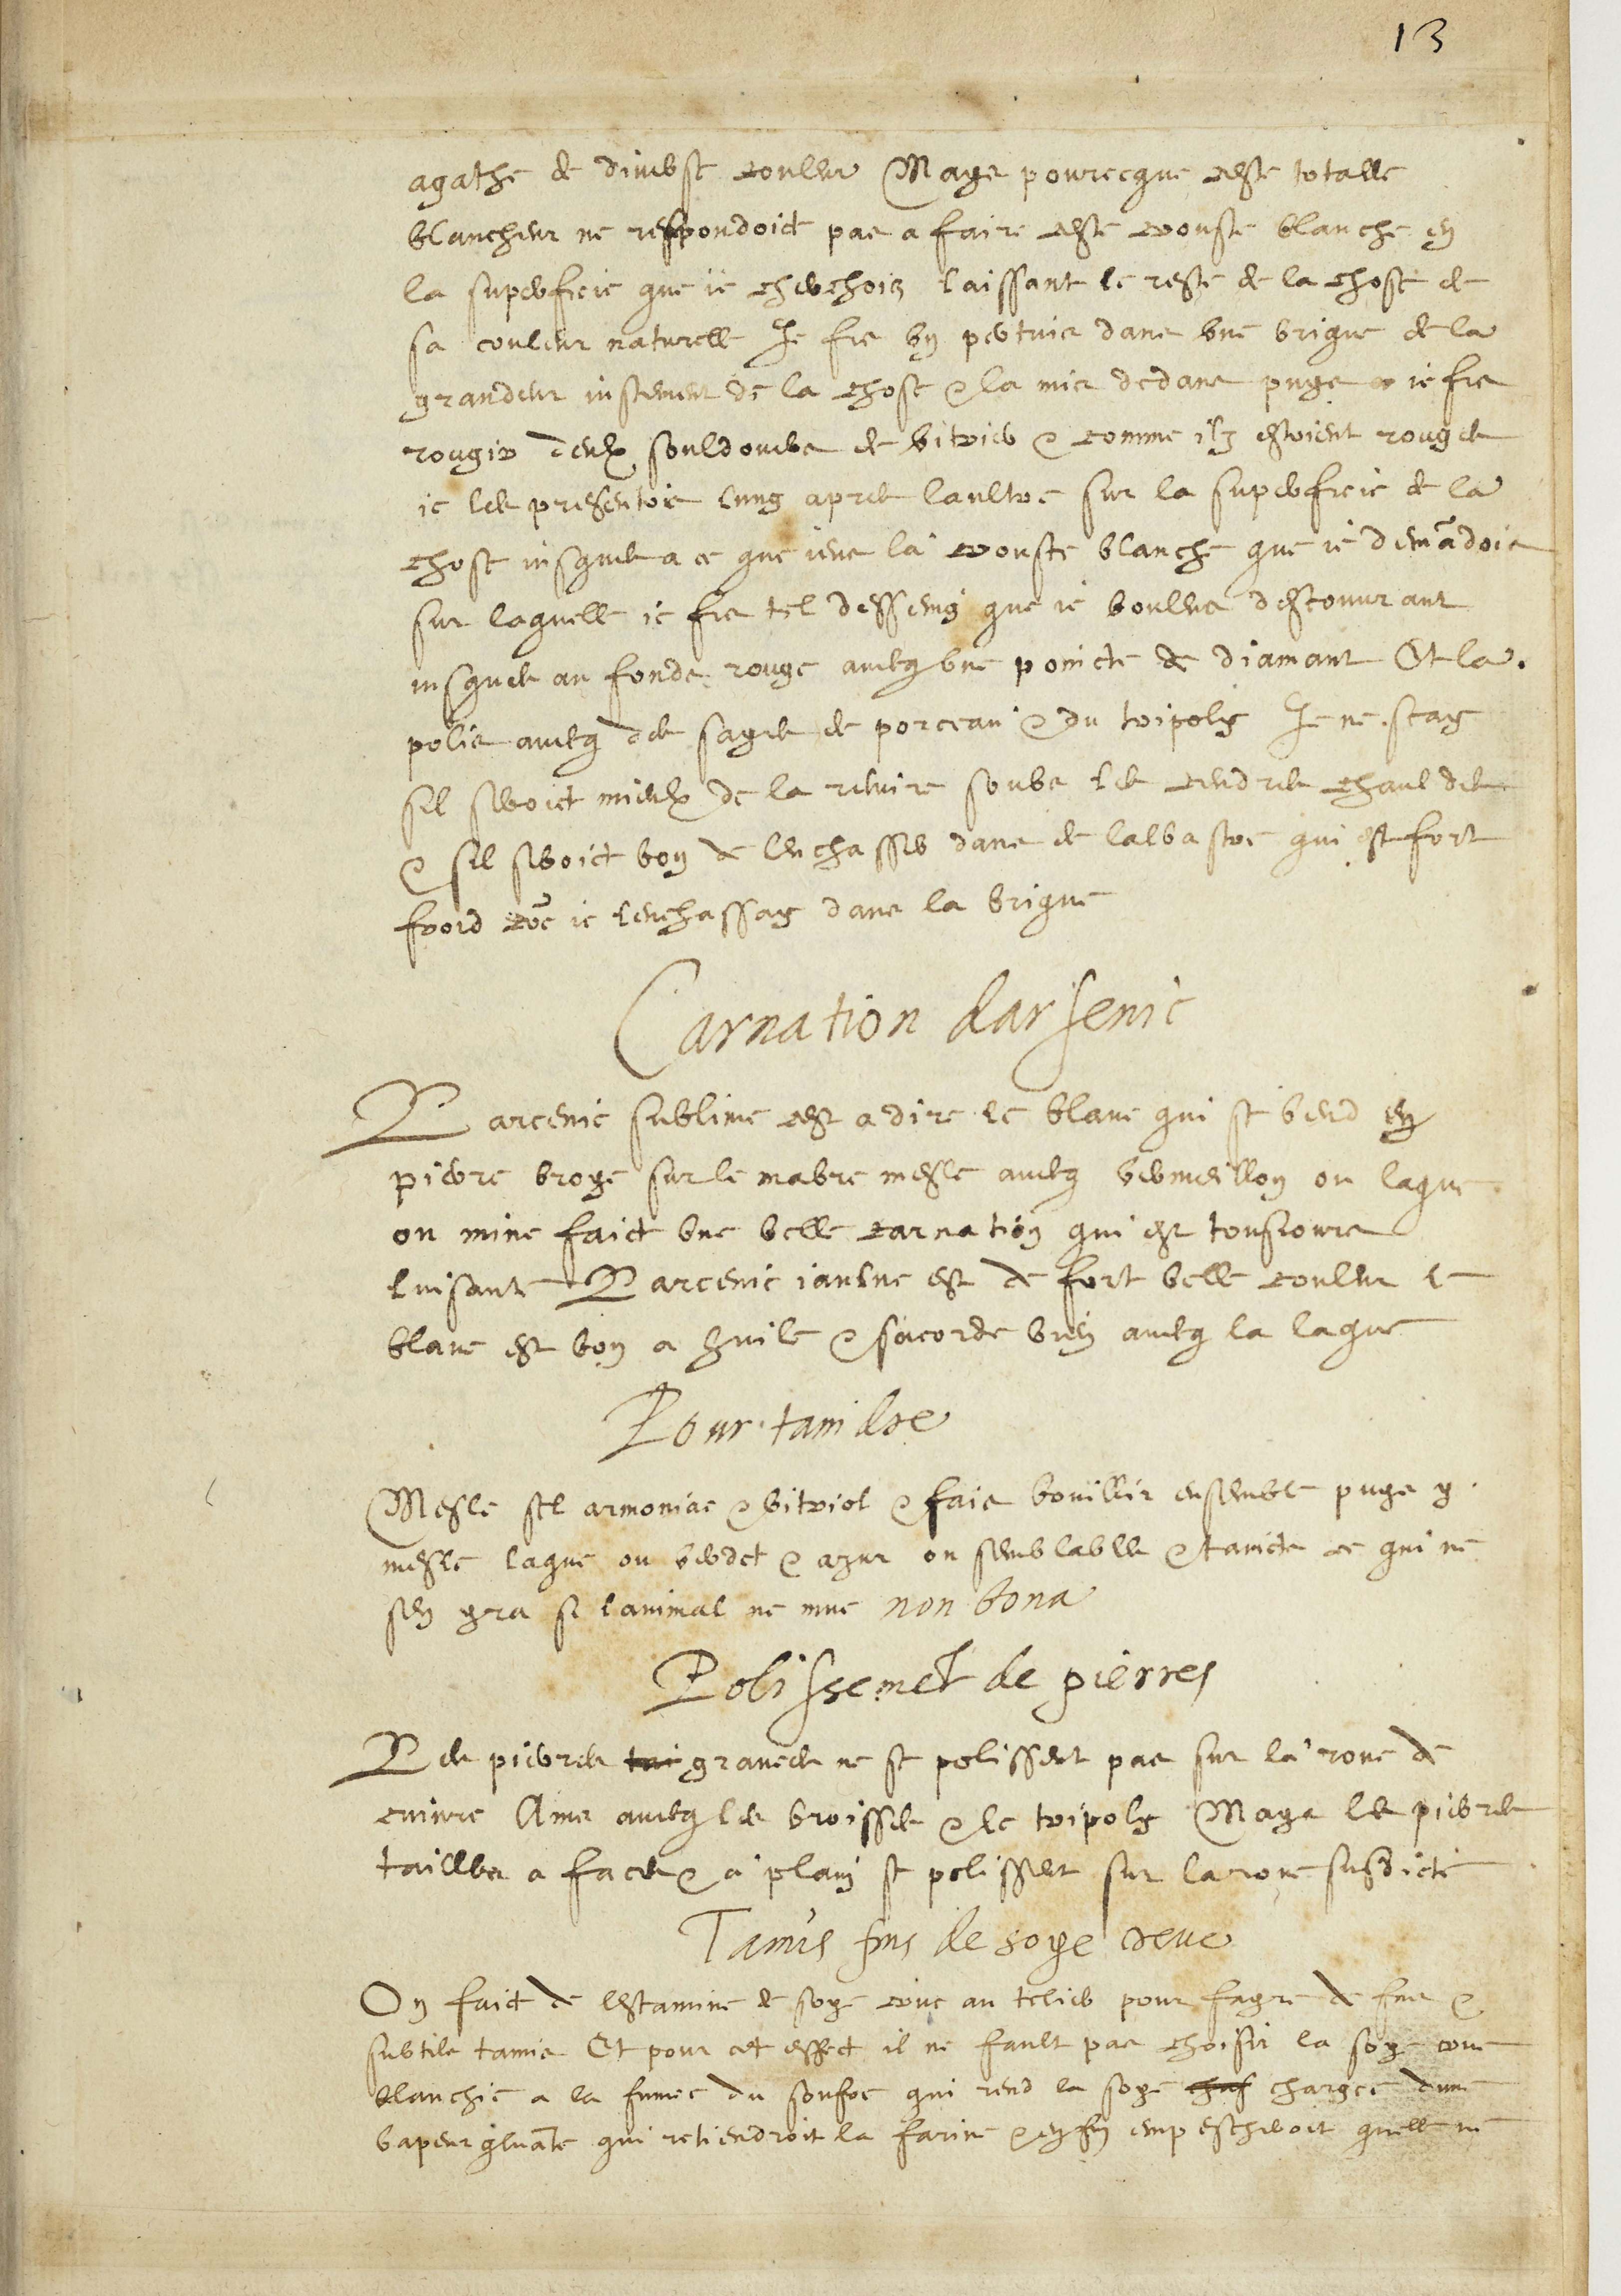 13
agathe de diverse couleur Mays pourceque ceste totalle
blancheur ne respondoict pas a faire ceste crouste blanche en
la superficie que ie cherchois laissant le reste de la chose de
sa couleur naturelle Je fis un pertuis dans une brique de la
grandeur iustement de la chose & la mis dedans puys ie fis
rougir deulx souldouers de vitrier & comme ilz estoient rouges
ie les presentois lung apres laultre sur la superficie de la
chose iusques a ce que ieus la crouste blanche que ie demādois
sur laquelle ie fis tel desseing que ie voulus descouvrant
iusques au fonds rouge avecq une poincte de diamant Et la
polis avecq des sayes de porceau & du tripoly Je ne scay
sil seroict mieulx de la recuire soubs les cendres chauldes
& sil seroict bon de lenchasser dans de lalbastre qui est fort
froid cōe ie lenchassay dans la brique
Carnation darsenic
Larcenic sublime cest a dire le blanc qui se vend en
pierre broye sur le mabre mesle avecq vermeillon ou laque
ou mine faict une belle carnation qui est tousiours
luisante Larcenic iaulne est de fort belle couleur le
blanc est bon a huile & sacorde bien avecq la laque
Pour taindre
Mesle sel armoniac & vitriol & fais bouillir ensemble puys y
mesle laque ou verdet & azur ou semblables & taincts ce qui ne
sen yra si lanimal ne mue non bona
Polissemēt de pierres
Les pierres gravees ne se polissent pas sur la roue de
cuivre Ains avecq les broisses & le tripoly Mays les pierres
taillees a faces & a plain se polissent sur la roue susdicte
Tamis fins de soye creue
On faict de lestamine de soye crue au telier pour fayre de fins &
subtils tamis Et pour cet effect il ne fault pas choisir la soye crue
blanchie a la fumee du soufre qui rend la soye chargee dune
vapeur gluāte qui retiendroit la farine & enfin empescheroit quelle ne